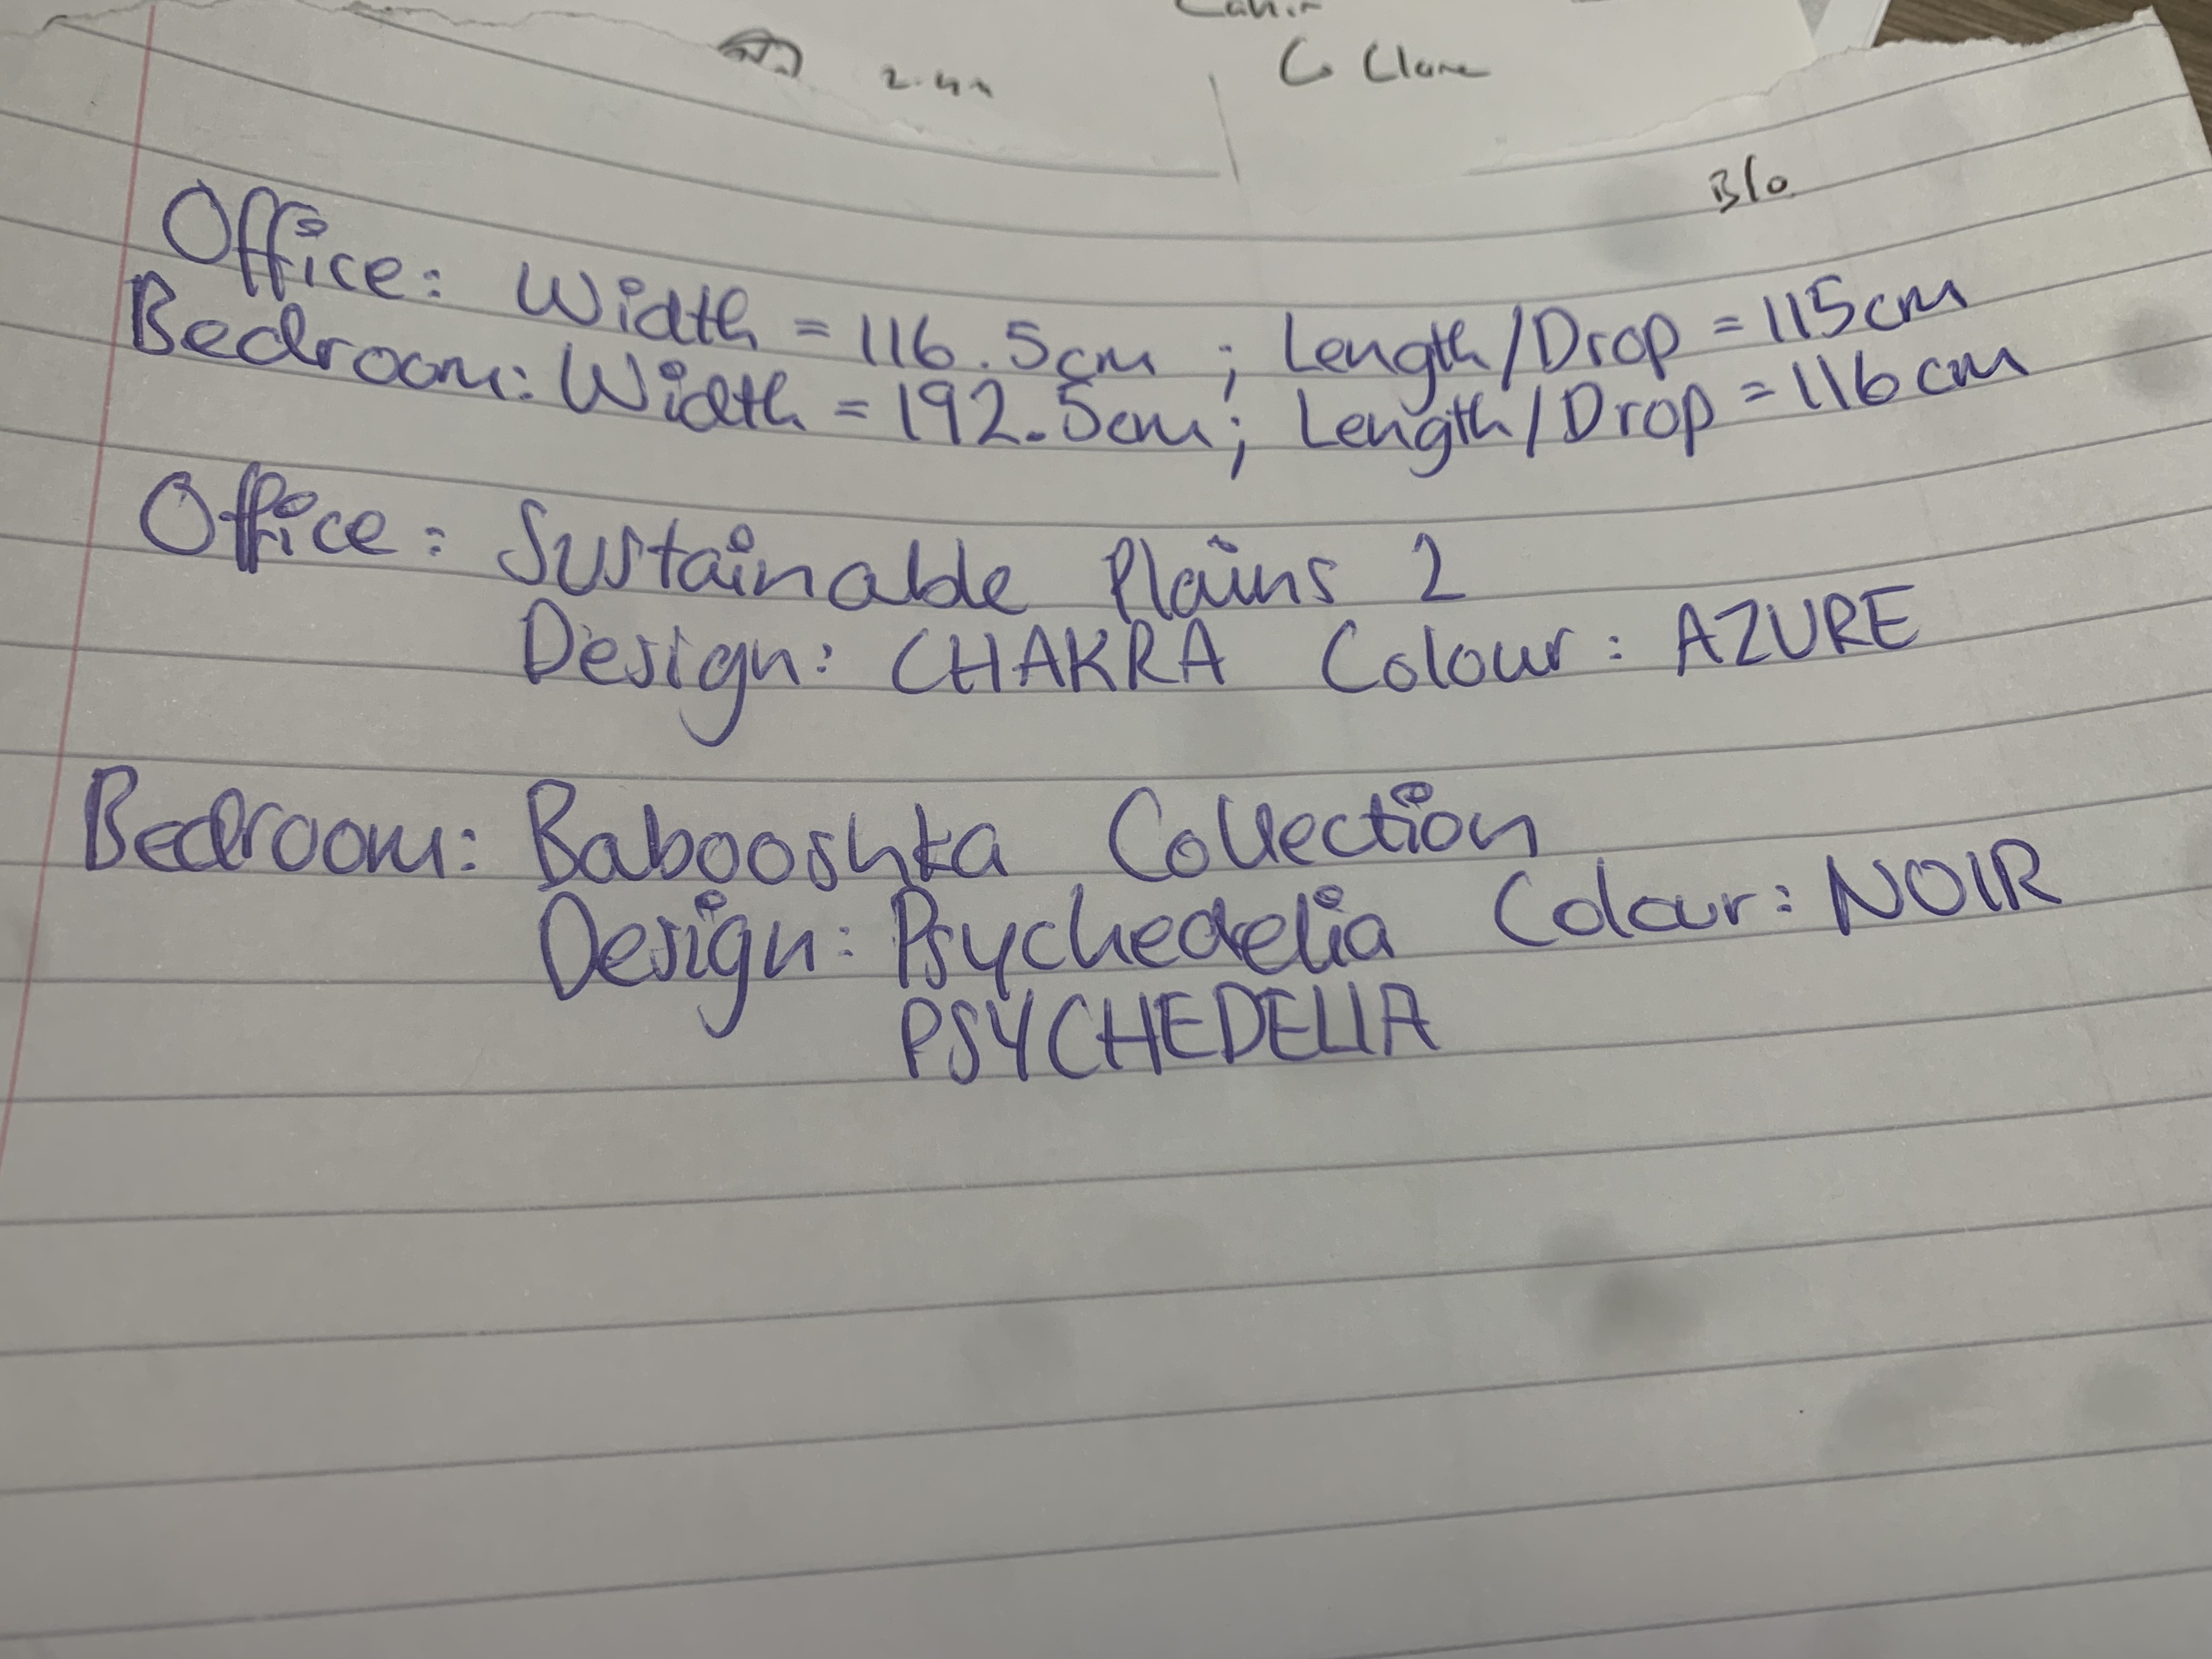 2.4m
Co Clare
B/o
Office: Width = 116.5cm ; Length/Drop = 115cm
Bedroom: Width = 192.5cm; Length/Drop = 116cm
Office: Sustainable Plains 2
Design: CHAKRA Colour: AZURE
Bedroom: Babooshka Collection
Design: Psychedelia Colour: NOIR
PSYCHEDELIA